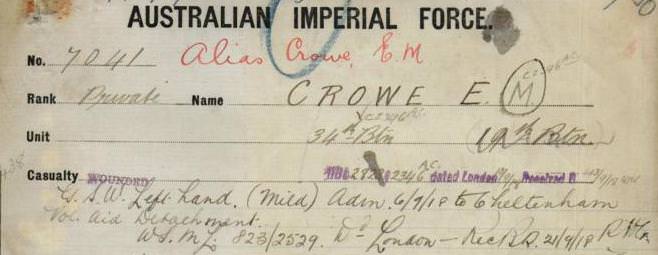 AUSTRALIAN IMPERIAL FORCE.
No. 7041 Alias Crowe, E. M
Rank Private Name CROWE E. M
Unit 34th Btn
Casualty WOUNDED dated London Received
G. S. W. Left hand. (Mild) Adm. 6/9/18 to Cheltenham
Vol. Aid Detachment.
W.S.M.L. 823/2529. Do London - Rec 21/9/18